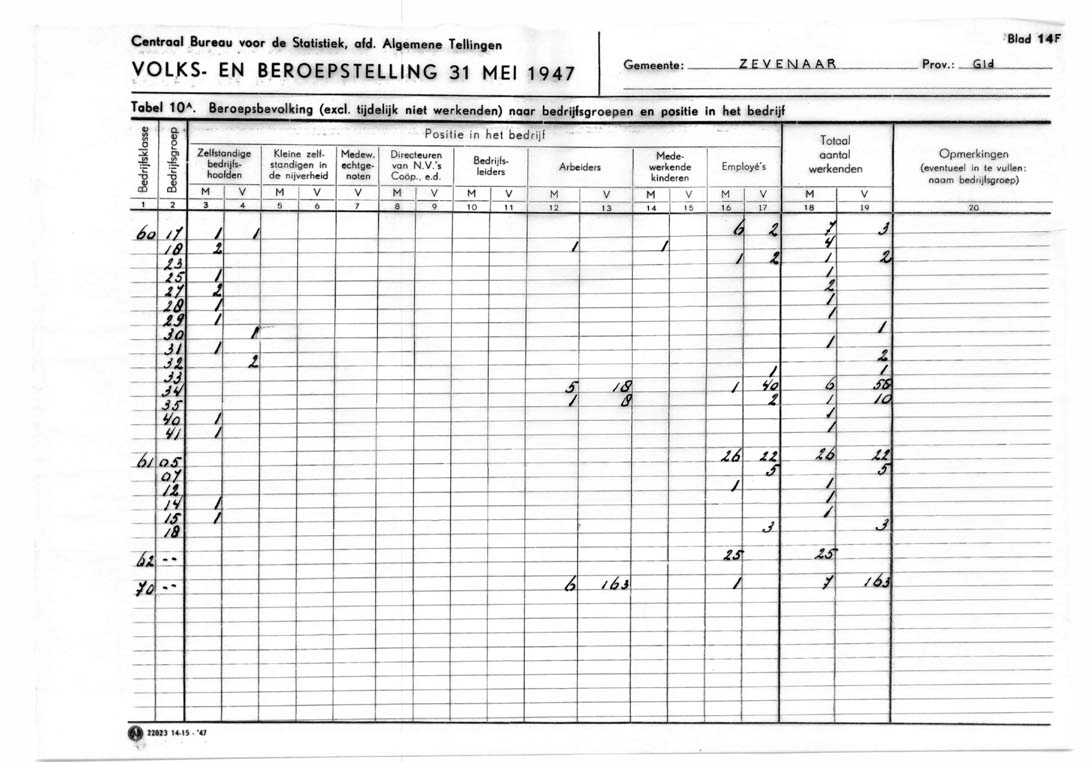 Centraal Bureau voor de Statistiek, afd. Algemene Tellingen
Blad 14F
VOLKS- EN BEROEPSTELLING 31 MEI 1947
Gemeente: ZEVENAAR Prov.: Gld
Tabel 10A. Beroepsbevolking (excl. tijdelijk niet werkenden) naar bedrijfsgroepen en positie in het bedrijf
Bedrijfsklasse
Bedrijfsgroep
Positie in het bedrijf
Zelfstandige bedrijfs-hoofden
Kleine zelf-standigen in de nijverheid
Medew. echtge-noten
Directeuren van N.V.'s Coöp., e.d.
Bedrijfs-leiders
Arbeiders
Mede-werkende kinderen
Employé's
Totaal aantal werkenden
Opmerkingen (eventueel in te vullen: naam bedrijfsgroep)
M V M V V M V M V M V M V M V M V
1 2 3 4 5 6 7 8 9 10 11 12 13 14 15 16 17 18 19 20
60 17 1 1 6 2 7 3
18 2 1 1 4
23 1 2 1 2
25 1 1
27 2 2
28 1 1
29 1 1
30 1 1
31 1 1
32 2 2
33 1 1
34 5 18 1 40 6 58
35 1 8 2 1 10
40 1 1
41 1 1
61 05 26 22 26 22
07 5 5
12 1 1
14 1 1
15 1 1
18 3 3
62 -- 25 25
70 -- 6 163 1 7 163
22823 14-15 - '47